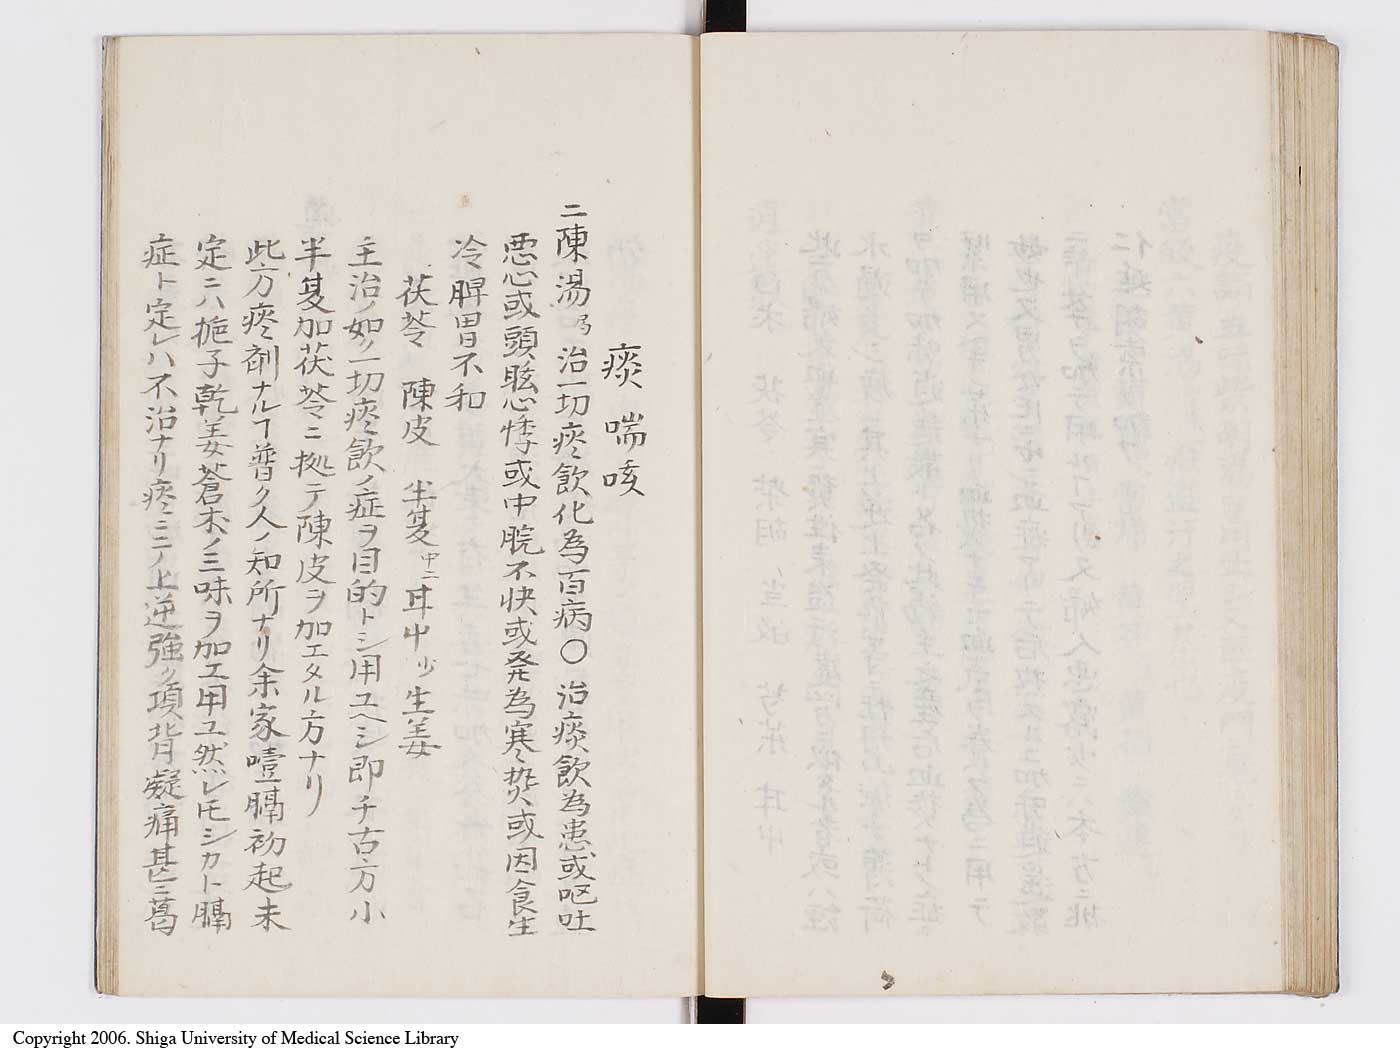 痰喘咳
二陳湯局 治一切痰飲化為百病〇治痰飲為患或呕吐
悪心或頭眩心悸或中脘不快或発為寒熱或因食生
冷脾胃不和
茯苓 陳皮 半夏中二 耳中少 生姜
主治ノ如ク一切痰飲ノ症ヲ目的トシ用ユヘシ即チ古方小
半夏加茯苓ニ拠テ陳皮ヲ加エタル方ナリ
此方痰剤ナルヿ普ク人ノ知所ナリ余家噎膈初起未
定ニハ梔子乾姜蒼朮ノ三味ヲ加エ用ユ然レ𪜈シカト膈
症ト定レハ不治ナリ痰ニテ上逆強ク項背凝痛甚ニ葛
Copyright 2006. Shiga University of Medical Science Library